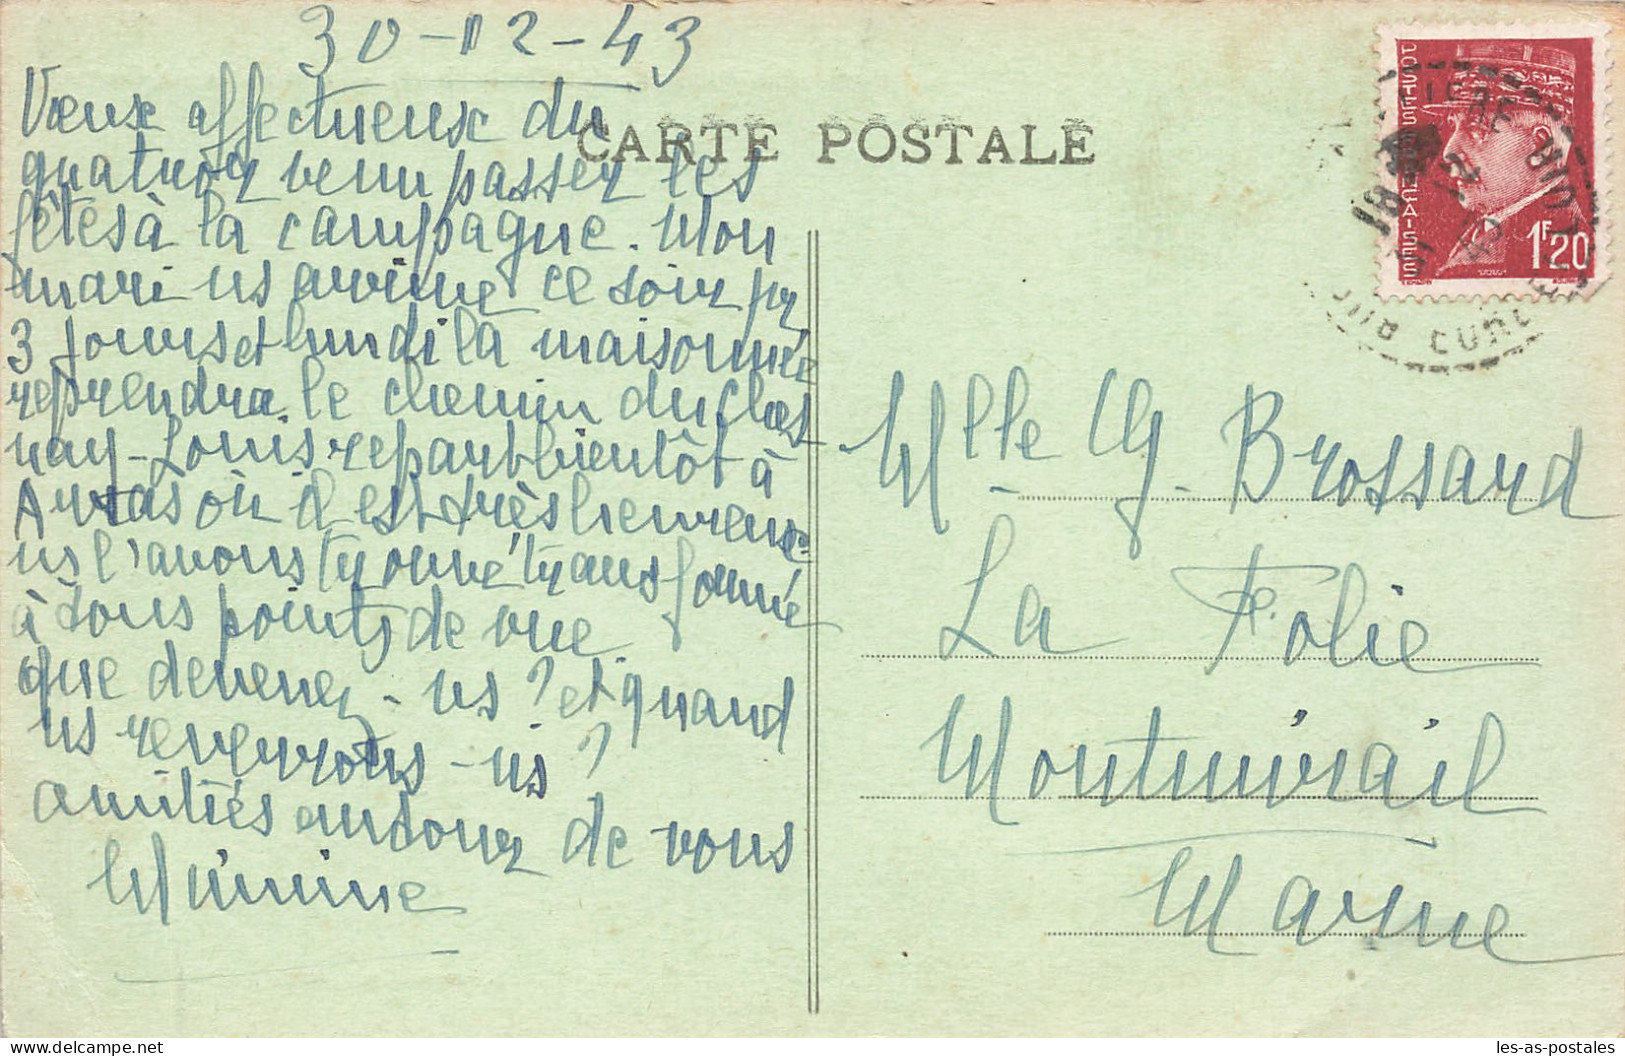 30-12-43
Vœux affectueux du
quatuor venu passer les
fêtes à la campagne. Mon
mari ns arrive ce soir pr
3 jours et lundi la maisonnée
reprendra le chemin du Ches
nay - Louis repart bientôt à
Arras où il est très heureux
ns l'avons trouvé transformé
à tous points de vue
que devenez-vs ? et quand
ns reverrons-ns ?
amitiés en d de vous
Mimine
CARTE POSTALE
POSTES FRANÇAISES
1F20
EURE
Mlle G. Brossard
La Folie
Montmirail
Marne
les-as-postales